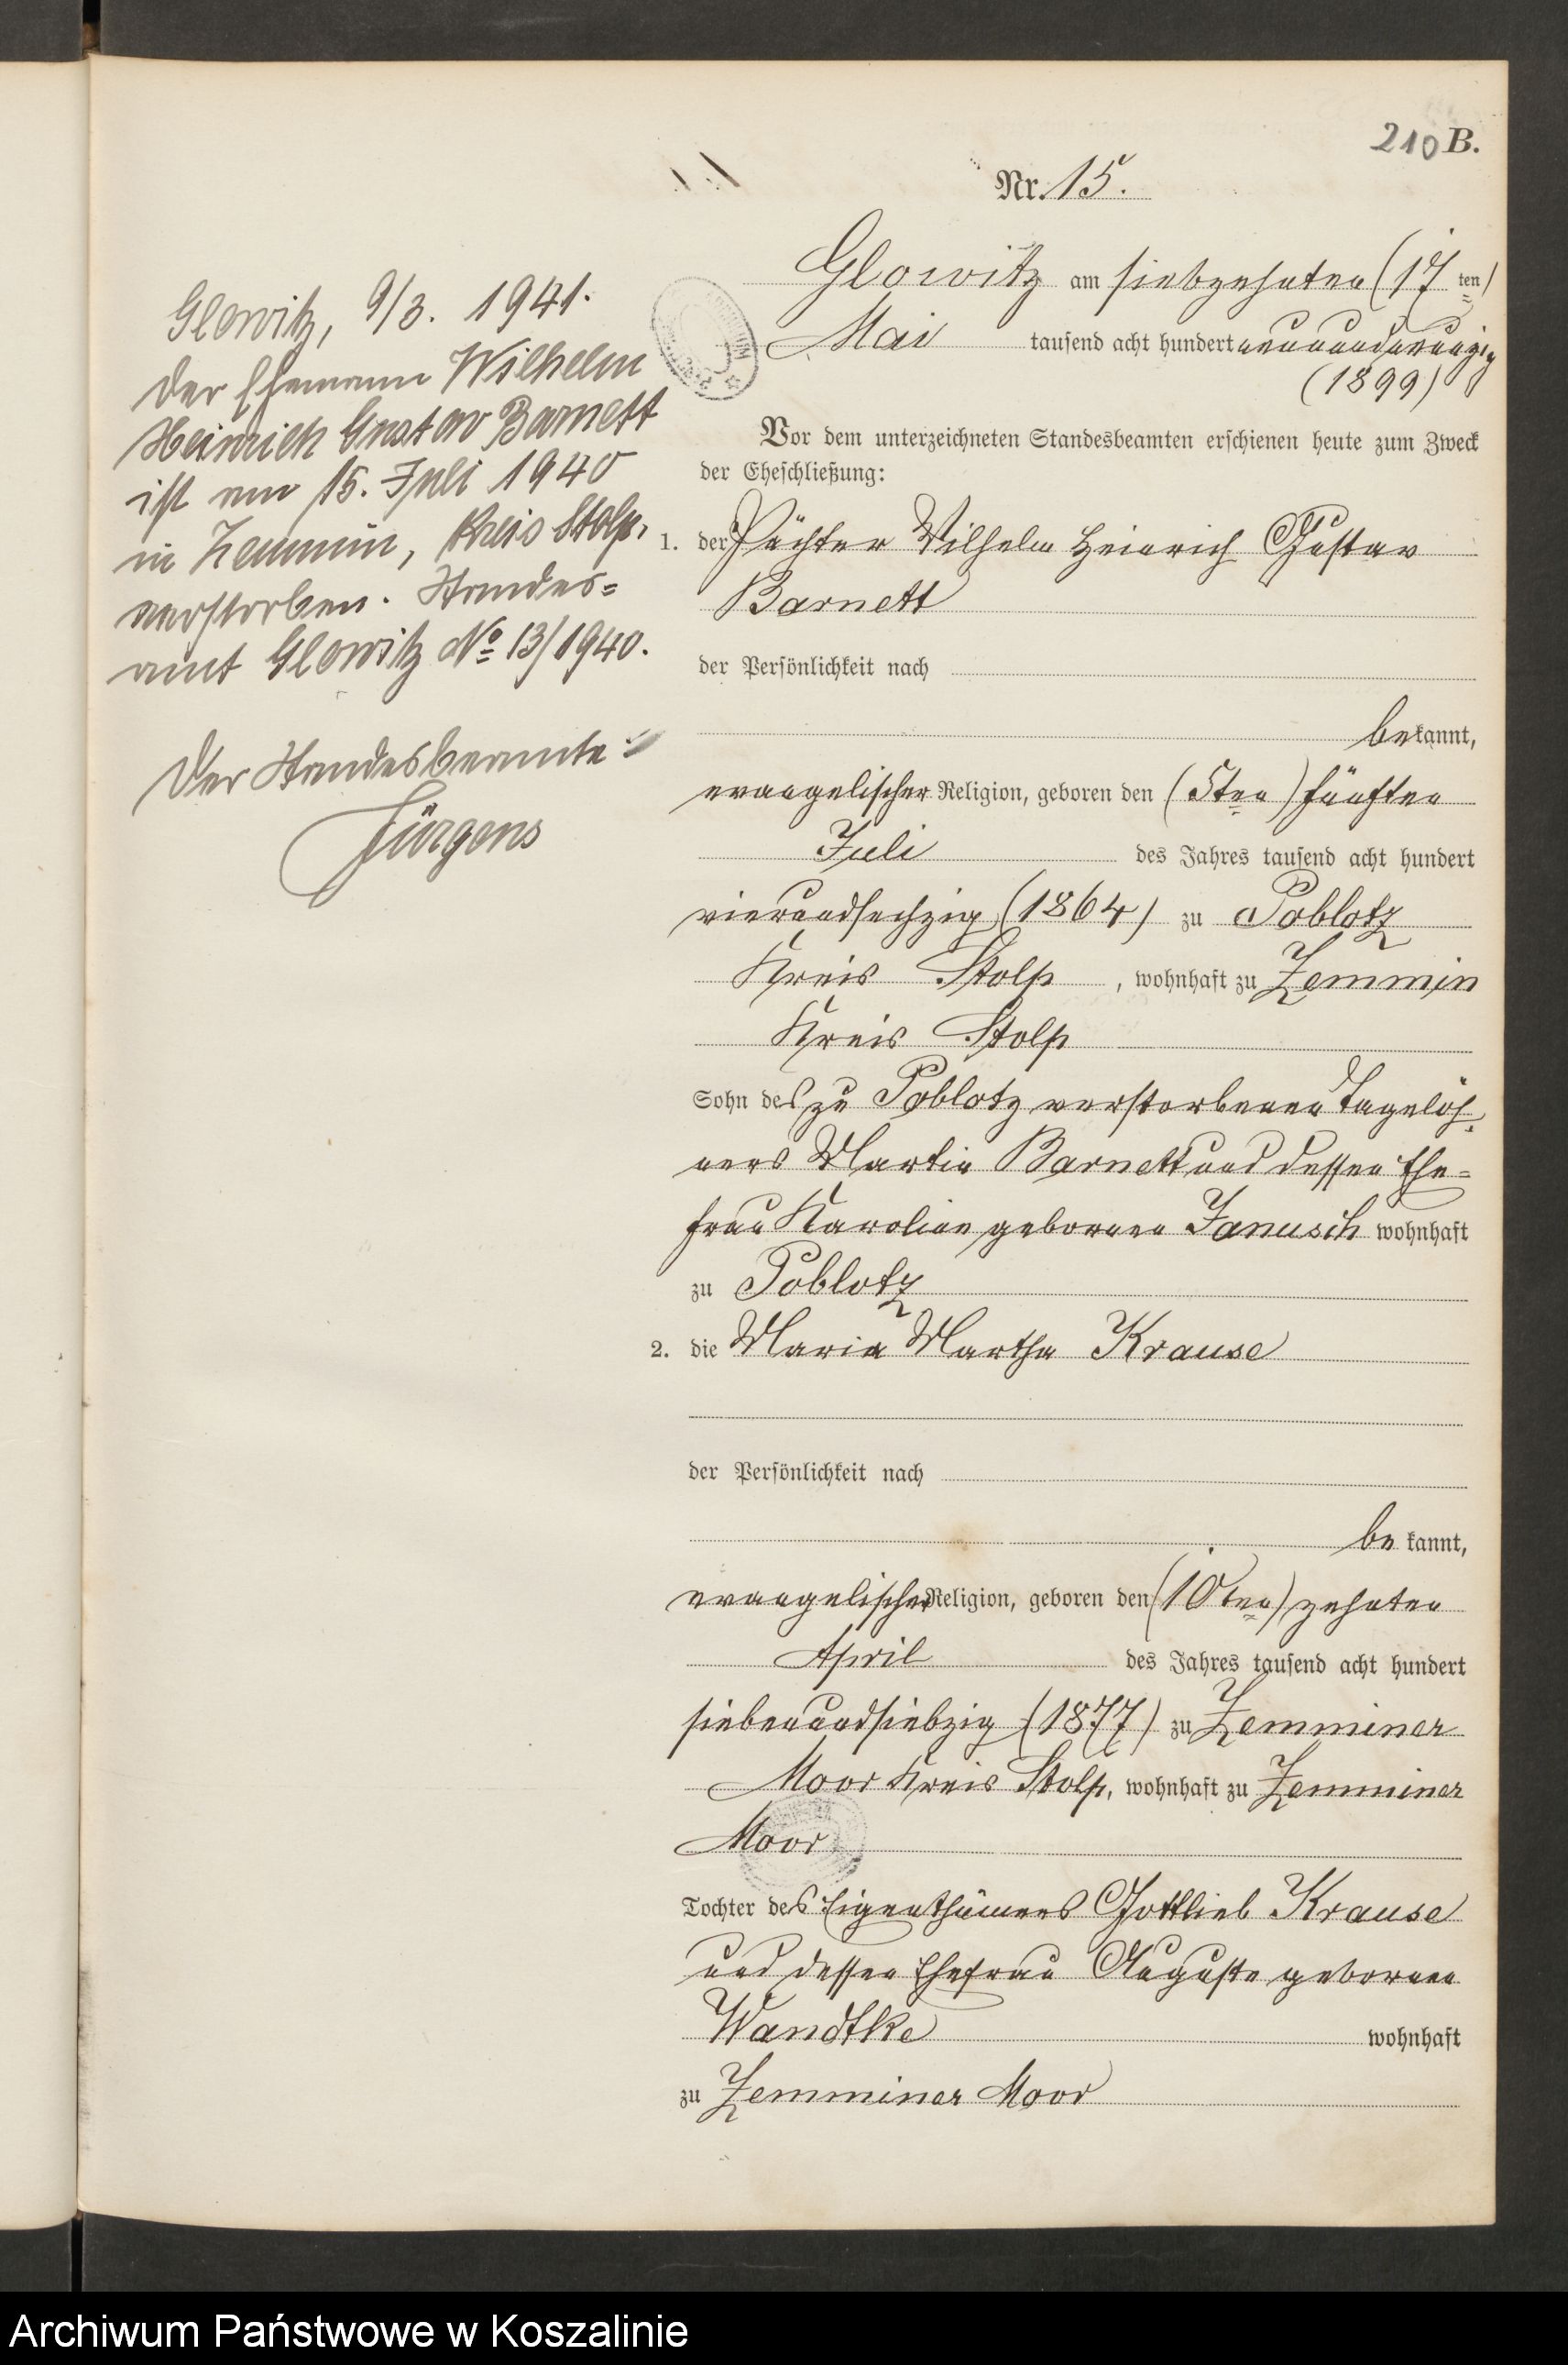 210 B.
Nr. 15.
Glowitz am siebzehnten (17 ten)
Mai tausend acht hundert neunundneunzig
(1899)
Vor dem unterzeichneten Standesbeamten erschienen heute zum Zweck
der Eheschließung:
1. der Pächter Wilhelm Heinrich Gustav
Barnett
der Persönlichkeit nach
bekannt,
evangelischer Religion, geboren den (5ten) fünften
Juli des Jahres tausend acht hundert
vierundsechzig (1864) zu Poblotz
Kreis Stolp, wohnhaft zu Zemmin
Kreis Stolp
Sohn des zu Poblotz verstorbenen Tagelöh-
ners Martin Barnett und dessen Ehe=
frau Karoline geborenen Janusch wohnhaft
zu Poblotz
2. die Maria Martha Krause
der Persönlichkeit nach
be kannt,
evangelischer Religion, geboren den (10ten) zehnten
April des Jahres tausend acht hundert
siebenundsiebzig (1877) zu Zemminer
Moor Kreis Stolp, wohnhaft zu Zemminer
Moor
Tochter des Eigenthümers Gottlieb Krause
und dessen Ehefrau Auguste geborenen
Wandtke wohnhaft
zu Zemminer Moor
Glowitz, 9/3. 1941.
Der Ehemann Wilhelm
Heinrich Gustav Barnett
ist am 15. Juli 1940
in Zemmin, Kreis Stolp,
verstorben. Standes=
amt Glowitz No 13/1940.
Der Standesbeamte:
Jürgens
Archiwum Państwowe w Koszalinie